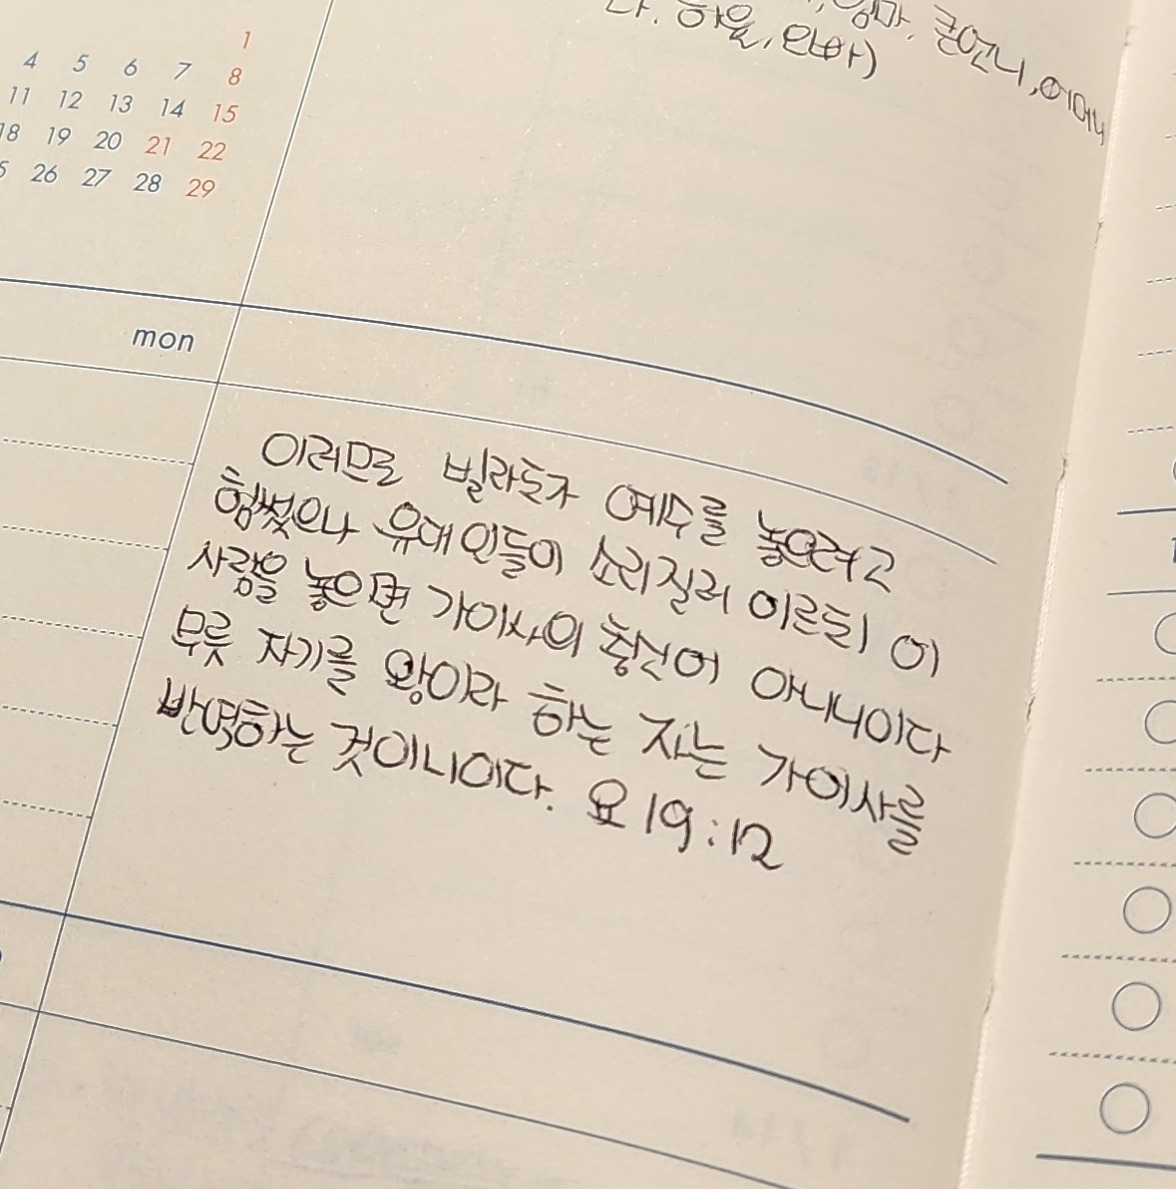 1
4 5 6 7 8
11 12 13 14 15
18 19 20 21 22
26 27 28 29
큰언니, 어머니
다. 하율, 오빠)
mon
이러므로 빌라도가 예수를 놓으려고
힘썼으나 유대인들이 소리질러 이르되 이
사람을 놓으면 가이사의 충신이 아니니이다
무릇 자기를 왕이라 하는 자는 가이사를
반역하는 것이니이다. 요 19:12